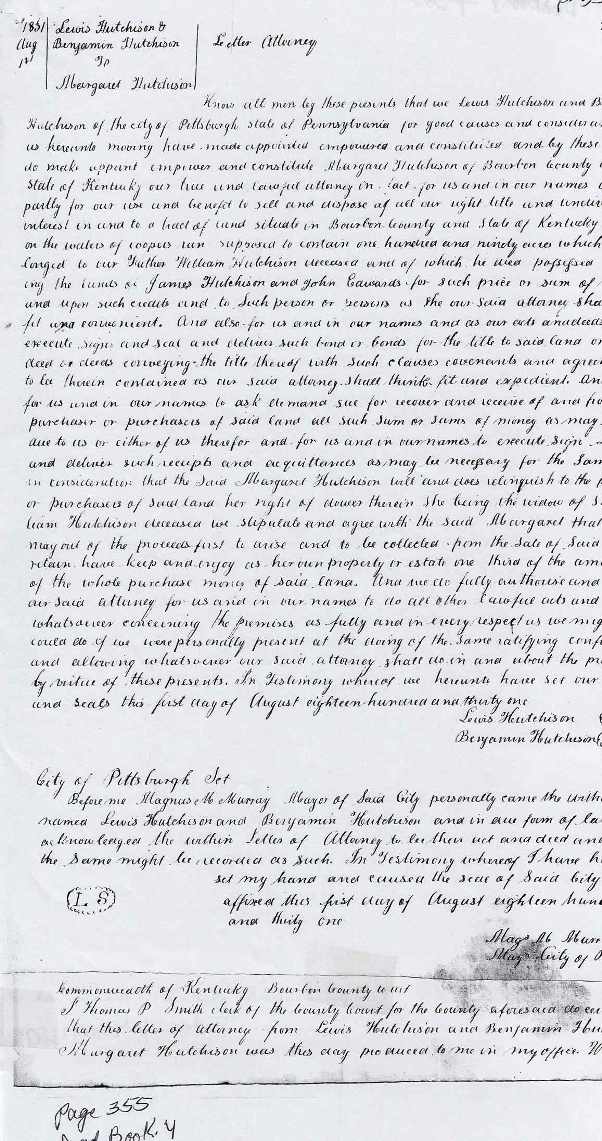 1831
Lewis Hutchison &
Aug
Benjamin Hutchison
1st
To
Letter Attorney
Margaret Hutchison
Know all men by these presents that we Lewis Hutchison and B
Hutchison of the city of Pittsburgh state of Pennsylvania for good causes and considera
us hereunto moving have made appointed empowered and constituted and by these
do make appoint empower and constitute Margaret Hutchison of Bourbon County
State of Kentucky our true and lawful attorney in fact for us and in our names
partly for our use and benefit to sell and dispose of all our right title and undivi
interest in and to a tract of land situate in Bourbon County and State of Kentucky
on the waters of coopers run supposed to contain one hundred and ninety acres which
longed to our Father William Hutchison deceased and of which he died possessed
ing the lands of James Hutchison and John Edwards for such price or sum of
and upon such credits and to such person or persons as the our said attorney sha
fit and convenient. And also for us and in our names and as our acts and deeds
execute sign and seal and deliver such bond or bonds for the title to said land or
deed or deeds conveying the title thereof with such clauses covenants and agree
to be therein contained as our said attorney shall think fit and expedient. An
for us and in our names to ask demand sue for recover and receive of and fro
purchaser or purchasers of said land all such sum or sums of money as may
due to us or either of us therefor and for us and in our names to execute sign
and deliver such receipts and acquittances as may be necessary for the Sam
in consideration that the said Margaret Hutchison will and does relinquish to the p
or purchasers of said land her right of dower therein she being the widow of S
liam Hutchison deceased we stipulate and agree with the said Margaret that
may out of the proceeds first to arise and to be collected from the Sale of Said
retain have keep and enjoy as her own property or estate one third of the am
of the whole purchase money of said land. And we do fully authorise and
our said attorney for us and in our names to do all other lawful acts and
whatsoever concerning the premises as fully and in every respect as we mig
could do if we were personally present at the doing of the same ratifying conf
and allowing whatsoever our said attorney shall do in and about the pr
by virtue of these presents. In Testimony whereof we hereunto have set our
and seals this first day of August eighteen hundred and thirty one
Lewis Hutchison
Benjamin Hutchison
City of Pittsburgh Sct
Before me Magnus M Murray Mayor of Said City personally came the within
named Lewis Hutchison and Benjamin Hutchison and in due form of la
acknowledged the within Letter of Attorney to be their act and deed and
the Same might be recorded as such. In Testimony whereof I have h
set my hand and caused the seal of Said City
L S
affixed this first day of August eighteen hun
and thirty one
Mags M Murr
Mayr City of P
Commonwealth of Kentucky Bourbon County court
I Thomas P Smith clerk of the County Court for the County aforesaid do cer
that this letter of attorney from Lewis Hutchison and Benjamin Hu
Margaret Hutchison was this day produced to me in my office. W
Page 355
Deed Book Y